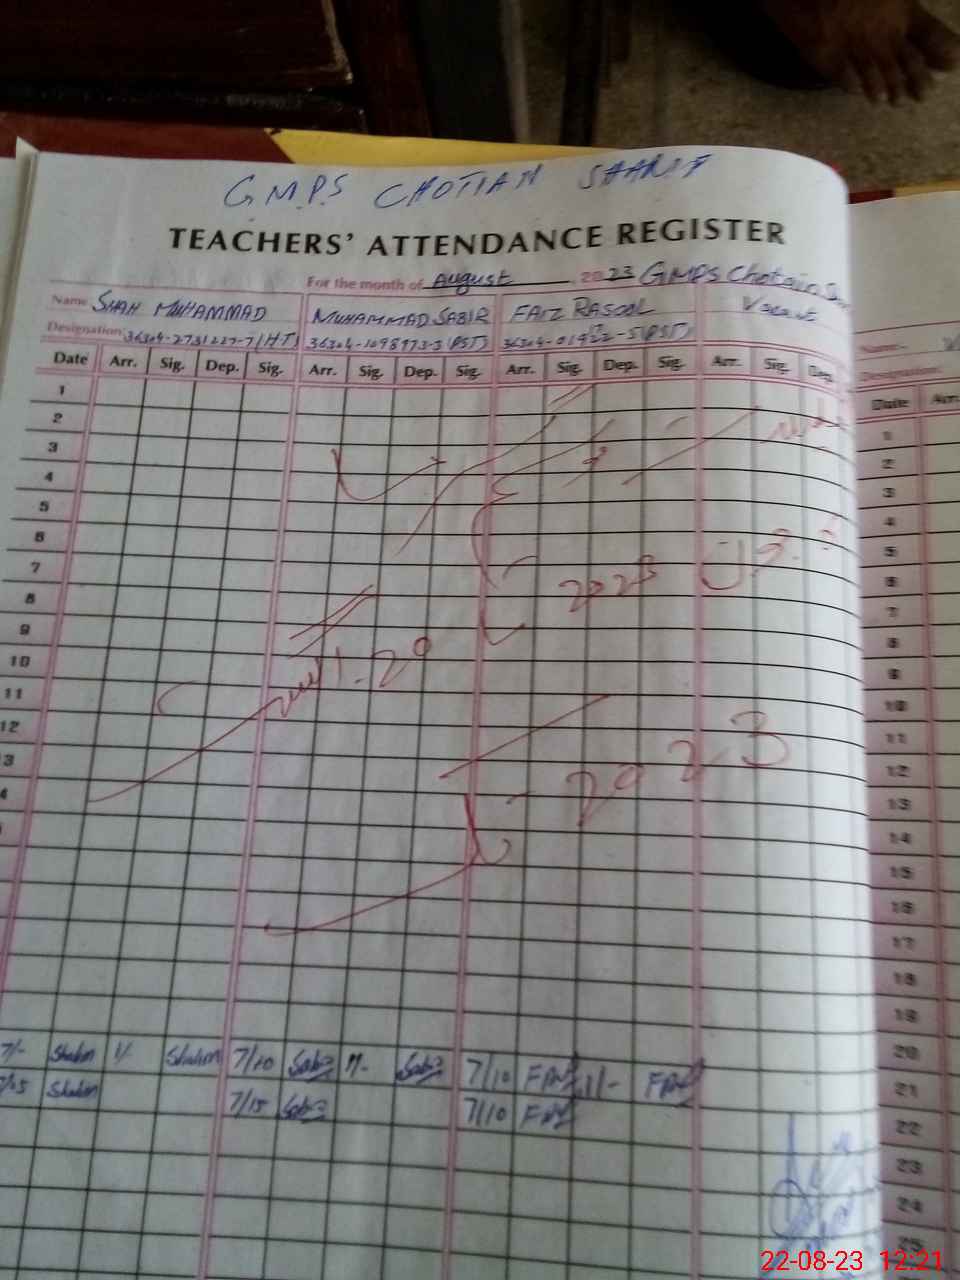 G.M.P.S CHOTIAN SHARIF
TEACHERS' ATTENDANCE REGISTER
For the month of August 2023 GMPS Chotain
Name SHAH MUHAMMAD MUHAMMAD SABIR FAIZ RASOOL Vacant
Designation 36304-2731227-7 (HT) 36304-1098973-3 (PST) (PST)
Date Arr. Sig. Dep. Sig. Arr. Sig. Dep. Sig. Arr. Sig. Dep. Sig. Arr. Sig. Dep.
1
2
3
4
5
6
7
8
9
10
11
12
3
4
2023
20
2023
7/- Shahm 1/- Shahm 7/10 Sabir 1/- Sabir 7/10 FAIZ 1/- FAIZ
7/15 Shahm 7/15 Sabir 7/10 FAIZ
Name:-
Designation:
Date Arr.
1
2
3
4
5
6
7
8
9
10
11
12
13
14
15
16
17
18
19
20
21
22
23
24
25
22-08-23 12:21